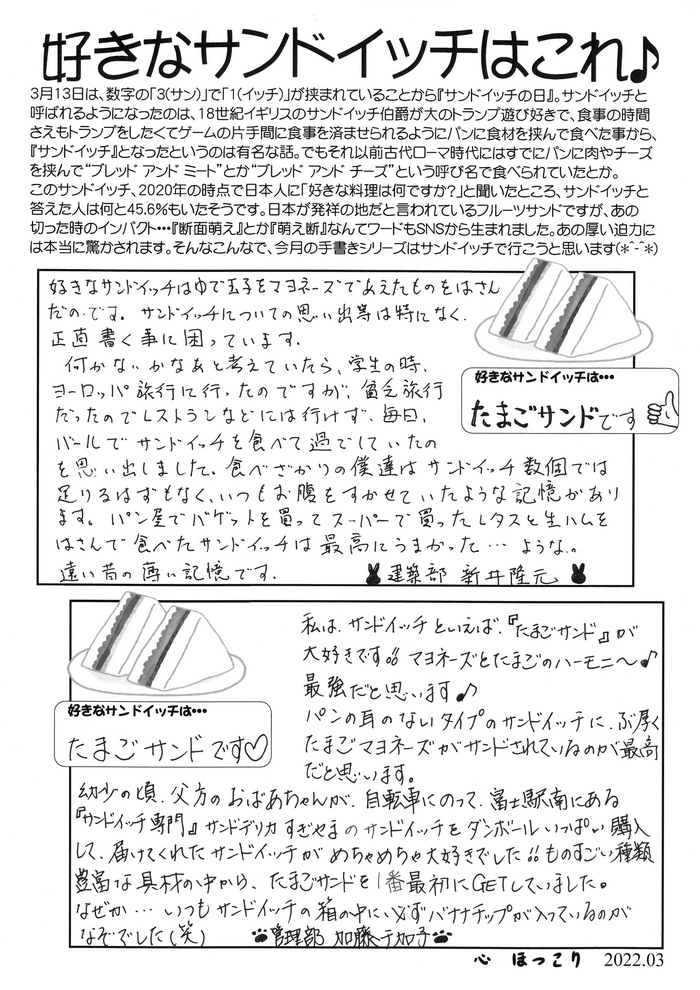 好きなサンドイッチはこれ♪
3月13日は、数字の「3(サン)」で「1(イッチ)」が挟まれていることから『サンドイッチの日』。サンドイッチと
呼ばれるようになったのは、18世紀イギリスのサンドイッチ伯爵が大のトランプ遊び好きで、食事の時間
さえもトランプをしたくてゲームの片手間に食事を済ませられるようにパンに食材を挟んで食べた事から、
『サンドイッチ』となったというのは有名な話。でもそれ以前古代ローマ時代にはすでにパンに肉やチーズ
を挟んで“ブレッド アンド ミート”とか“ブレッド アンド チーズ”という呼び名で食べられていたとか。
このサンドイッチ、2020年の時点で日本人に「好きな料理は何ですか？」と聞いたところ、サンドイッチと
答えた人は何と45.6%もいたそうです。日本が発祥の地だと言われているフルーツサンドですが、あの
切った時のインパクト・・・『断面萌え』とか『萌え断』なんてワードもSNSから生まれました。あの厚い迫力に
は本当に驚かされます。そんなこんなで、今月の手書きシリーズはサンドイッチで行こうと思います(*^-^*)
好きなサンドイッチはゆで玉子をマヨネーズであえたものをはさん
だのです。サンドイッチについての思い出等は特になく、
正直書く事に困っています。
何かないかなあと考えていたら、学生の時、
ヨーロッパ旅行に行ったのですが、貧乏旅行
だったのでレストランなどには行けず、毎日、
バールでサンドイッチを食べて過ごしていたの
を思い出しました。食べざかりの僕達はサンドイッチ数個では
足りるはずもなく、いつもお腹をすかせていたような記憶があり
ます。パン屋でバゲットを買ってスーパーで買ったレタスと生ハムを
はさんで食べたサンドイッチは最高にうまかった…ような。
遠い昔の薄い記憶です。
建築部 新井隆元
好きなサンドイッチは・・・
たまごサンドです
私は、サンドイッチといえば、『たまごサンド』が
大好きです!! マヨネーズとたまごのハーモニ〜♪
最強だと思います♪
パンの耳のないタイプのサンドイッチに、ぶ厚く
たまごマヨネーズがサンドされているのが最高
だと思います。
好きなサンドイッチは・・・
たまごサンドです♡
幼少の頃、父方のおばあちゃんが、自転車にのって、富士駅南にある
『サンドイッチ専門』サンドデリカすぎやまのサンドイッチをダンボールいっぱい購入
して、届けてくれたサンドイッチがめちゃめちゃ大好きでした!! ものすごい種類
豊富な具材の中から、たまごサンドを1番最初にGETしていました。
なぜか…いつもサンドイッチの箱の中に必ずバナナチップが入っているのが
なぞでした(笑)
管理部 加藤千加子
心 ほっこり 2022.03